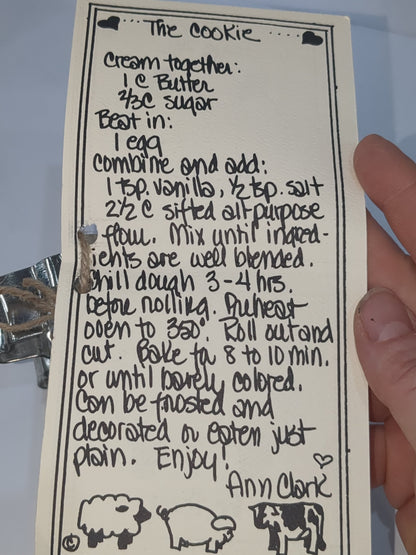 The Cookie
Cream together:
1 C Butter
2/3 C sugar
Beat in:
1 egg
Combine and add:
1 tsp. vanilla, 1/2 tsp. salt
2 1/2 C sifted all purpose
flour. Mix until ingred-
ients are well blended.
Chill dough 3-4 hrs.
before rolling. Preheat
oven to 350°. Roll out and
cut. Bake for 8 to 10 min.
or until barely colored.
Can be frosted and
decorated or eaten just
plain. Enjoy!
Ann Clark
©